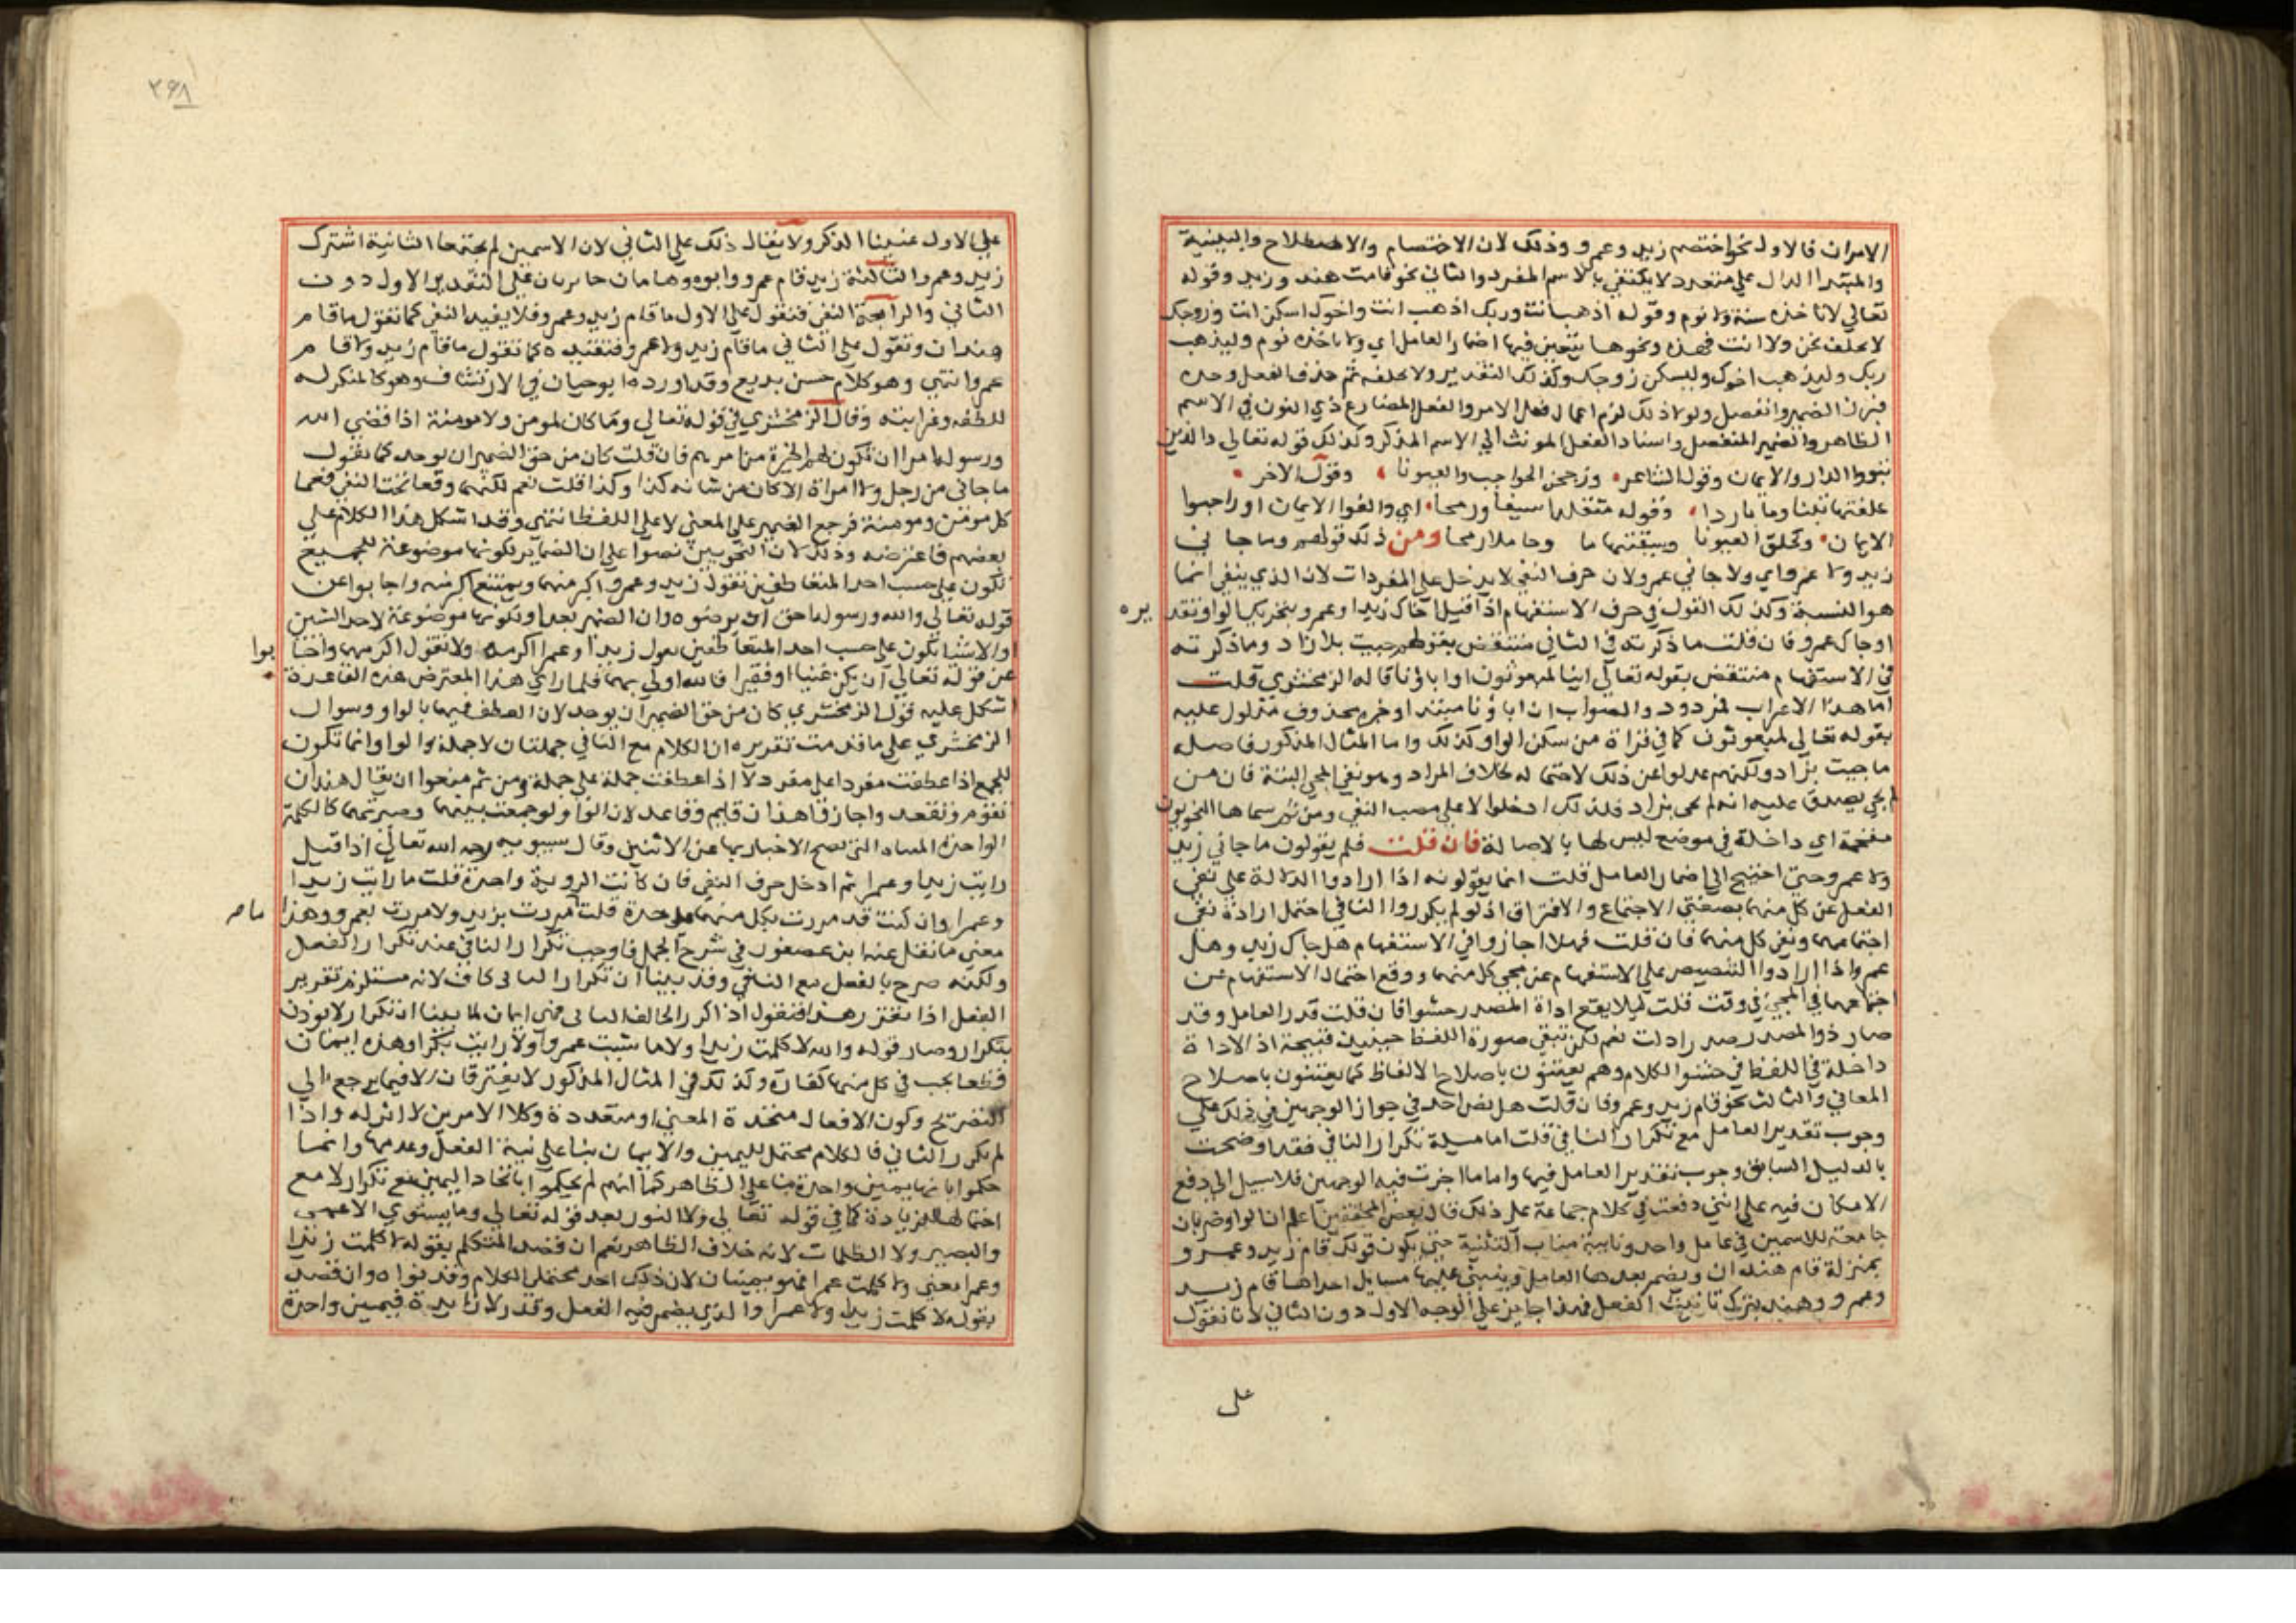 الامران فالاول نحو اختصم زيد وعمرو وذلك لان الاختصام والاصطلاح والبينية
والمبتدا الدال على متعدد لا يكتفي بالاسم المفرد والثاني نحو قامت هند وزيد وقوله
تعالي لا تاخذه سنة ولا نوم وقوله اذهب انت وربك اذهب انت واخوك اسكن انت وزوجك
لا نخلفه نحن ولا انت فهذه ونحوها يتعين فيها اضمار العامل اي ولا تاخذه نوم وليذهب
ربك وليذهب اخوك وليسكن زوجك وكذلك التقدير ولا تخلفه ثم حذف الفعل وحده
فبرز الضمير وانفصل ولولا ذلك لزم اعمال فعل الامر والفعل المضارع ذي النون في الاسم
الظاهر والضمير المنفصل واسناد الفعل المونث الي الاسم المذكر وكذلك قوله تعالي والذين
تبووا الدار والايمان وقول الشاعر وزججن الحواجب والعيونا وقول الاخر
علفتها تبنا وما باردا وقوله متقلدا سيفا ورمحا اي والفوا الايمان او راجبوا
الايمان وكحلن العيونا وسقيتها ما وحاملا رمحا ومن ذلك قولهم وما جا ني
زيد ولا عمرو اي ولا جاني عمرو لان حرف النفي لا يدخل علي المفردات لان الذي ينفي انما
هو النسبة وكذلك القول في حرف الاستفهام اذا قيل اجاك زيد او عمرو بتحريك الواو تقد
يره
او جاك عمرو فان قلت ما ذكرته في الثاني منتقض بقولهم جيت بلا زاد وما ذكرته
في الاستفهام منتقض بقوله تعالي اينا لمبعوثون اوا باونا قاله الزمخشري قلت
اما هذا الاعراب فمردود والصواب ان اباونا مبتدا وخبره محذوف مدلول عليه
بقوله تعالي لمبعوثون كما في قراة من سكن الواو وكذلك واما المثال المذكور فاصله
ما جيت بزاد ولكنهم عدلوا عن ذلك لاحتماله خلاف المراد وهو نفي المجي البتة فان من
لم يجي يصدق عليه انه لم يجي بزاد فلذلك ادخلوا لا علي مصب النفي ومن ثم سماها النحويون
مقحمة اي داخلة في موضع ليس لها بالاصالة فان قلت فلم يقولون ما جاني زيد
ولا عمرو حتي احتيج الي اضمار العامل قلت انما يقولونه اذا ارادوا الدلالة علي نفي
الفعل عن كل منهما بصفتي الاجتماع والافتراق اذ لو لم يكرروا النافي احتمل ارادة نفي
اجتماعهما ونفي كل منهما فان قلت فهلا اجازوا في الاستفهام هل جاك زيد وهل
عمرو اذا ارادوا التنصيص علي الاستفهام عن مجي كل منهما ووقع احتمال الاستفهام عن
اجتماعهما في المجي في وقت قلت ليلا يقع اداة المصدر حشوا فان قلت قدر العامل وقد
صار ذو المصدر صدرا قلت نعم لكن تبقي صورة اللفظ حينيذ قبيحة اذ الاداة
داخلة في اللفظ في حشو الكلام وهم يعتنون باصلاح الالفاظ كما يعتنون باصلاح
المعاني والثالث نحو قام زيد وعمرو فان قلت هل نص احد في جواز الوجهين في ذلك علي
وجوب تقدير العامل مع تكرار النافي قلت اما مسيلة تكرار النافي فقد اوضحت
بالدليل السابق وجوب تقدير العامل فيها واما ما اجزت فيه الوجهين فلا سبيل الي دفع
الامكان فيه علي انني دفعت في كلام جماعة علي ذلك قال بعض المحققين اعلم ان الواو ضربان
جامعة للاسمين في عامل واحد ونايبة مناب التثنية حتي يكون قولك قام زيد وعمرو
بمنزلة قام هندان ويضمر بعدها العامل وينبني عليهما مسايل احداها قام زيد
وعمرو وهند بترك تانيث الفعل فهذا جايز علي الوجه الاول دون الثاني لانا نقول
علي
٣٩٨
علي الاول غلبنا المذكر ولا يقال ذلك علي الثاني لان الاسمين لم يجتمعا الثانية اشترك
زيد وعمرو الثالثة زيد قام عمرو وابوه وهاتان جايزتان علي التقدير الاول دون
الثاني والرابعة النفي فتقول علي الاول ما قام زيد وعمرو فلا يفيد النفي كما تقول ما قام
هندان وتقول علي الثاني ما قام زيد ولا عمرو فتفيده كما تقول ما قام زيد ولا قام
عمرو انتهي وهو كلام حسن بديع وقد اورده ابو حيان في الارتشاف وهو كالمنكر له
للطفه وغرابته وقال الزمخشري في قوله تعالي وما كان لمومن ولا مومنة اذا قضي الله
ورسوله امرا ان تكون لهم الخيرة من امرهم فان قلت كان من حق الضمير ان يوحد كما تقول
ما جاني من رجل ولا امراة الا كان من شانه كذا وكذا قلت نعم لكنهما وقعا تحت النفي فعما
كل مومن ومومنة فرجع الضمير علي المعني لا علي اللفظ انتهي وقد اشكل هذا الكلام علي
بعضهم فاعترضه وذلك لان النحويين نصوا علي ان الضماير بكونها موضوعة للجميع
تكون علي حسب احد المتعاطفين تقول زيد وعمرو اكرمتهما ويمتنع اكرمته واجابوا عن
قوله تعالي والله ورسوله احق ان يرضوه وان الضمير بعد او بكونها موضوعة لاحد الشيين
او الاشيا تكون علي حسب احد المتعاطفين تقول زيدا او عمرا اكرمه ولا تقول اكرمهما واجا
بوا
عن قوله تعالي ان يكن غنيا او فقيرا فالله اولي بهما فلما راي هذا المعترض هذه القاعدة
اشكل عليه قول الزمخشري كان من حق الضمير ان يوحد لان العطف فيهما بالواو وسوال
الزمخشري علي ما قدمت تقريره ان الكلام مع النافي جملتان لا جملة والواو انما تكون
للجمع اذا عطفت مفردا علي مفرد لا اذا عطفت جملة علي جملة ومن ثم منعوا ان يقال هندان
تقوم وتقعد واجازوا هذان قايم وقاعد لان الواو لو جمعت بينهما وصيرتهما كالكلمة
الواحدة المثناه التي يصح الاخبار بها عن الاثنين وقال سيبويه رحمه الله تعالي اذا قيل
رايت زيدا وعمرا ثم ادخل حرف النفي فان كانت الروية واحدة قلت ما رايت زيدا
وعمرا وان كنت قد مررت بكل منهما علي حدة قلت مررت بزيد ولا مررت بعمرو وهذا
ما
معني ما نقل عنه ابن عصفور في شرح الجمل فاوجب تكرار النافي عند تكرار الفعل
ولكنه صرح بالفعل مع النافي وقد بينا ان تكرار النافي كاف لانه مستلزم تقرير
الفعل اذا تقرر هذا فنقول اذا كرر الحالف النافي فهي ايمان لما بينا ان تكرار لا يوذن
بتكرار وصار قوله والله لا كلمت زيدا ولا ماشيت عمروا ولا رايت بكرا وهذه ايمان
قطعا يجب في كل منها كفارة وكذلك في المثال المذكور لا يفترقان الا فيما يرجع الي
التصريح وكون الافعال متحدة المعني او متعددة وكلا الامرين لا اثر له واذا
لم يكرر الثاني فالكلام محتمل لليمين والايمان بنا علي نية الفعل وعدمها وانما
حكموا بانها يمين واحدة بنا علي الظاهر كما انهم لم يحكموا باتحاد اليمين مع تكرار لا مع
احتمالها للزيادة كما في قوله تعالي ولا النور بعد قوله تعالي وما يستوي الاعمي
والبصير ولا الظلمات لانه خلاف الظاهر نعم ان قصد المتكلم بقوله لا كلمت زيدا
وعمرا معني ولا كلمت عمرا فهو يمينان لان ذلك احد محتملي الكلام وقد نواه وان قصد
بقوله لا كلمت زيدا ولا عمرا والذي يضمر فيه الفعل وقدر لا زايدة فيمين واحدة